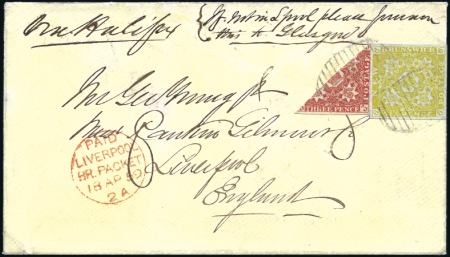 via Halifax
If not in L'pool please forward
this to Glasgow
BRUNSWICK
POSTAGE
THREE PENCE
Mr Geo Young Jr
Rankin Gilmour &
Liverpool
England
PAID
LIVERPOOL
BR. PACKET
18 AP
2A